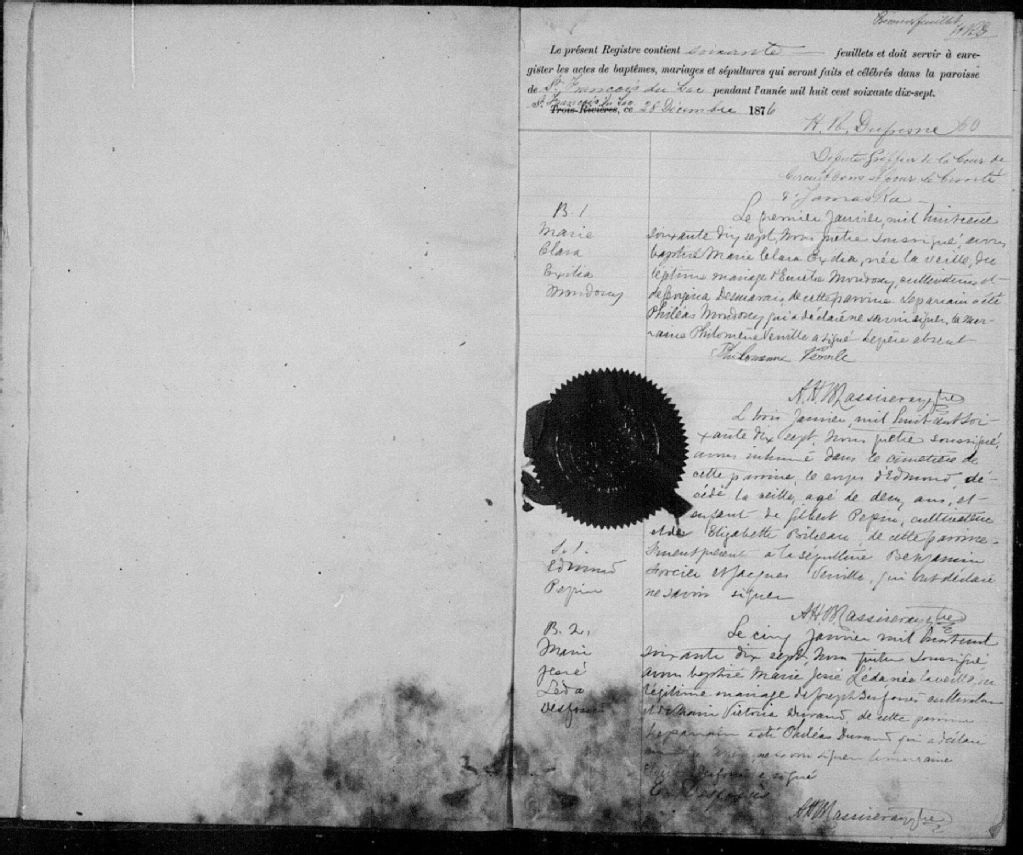 Premier feuillet
Le présent Registre contient soixante feuillets et doit servir à enre-
gister les actes de baptêmes, mariages et sépultures qui seront faits et célébrés dans la paroisse
de St François du Lac pendant l'année mil huit cent soixante dix-sept.
St François du Lac
Trois-Rivières, ce 28 Décembre 1876
H. R. Dufresne
Député Greffier de la Cour de
Circuit dans et pour le Comté
d'Yamaska
B. 1
Marie
Clara
Exilia
Mondoux
Le premier Janvier, mil huit cent
soixante dix sept, Nous prêtre soussigné, avons
baptisé Marie Clara Exilia, née la veille, du
légitime mariage d' Mondoux, cultivateur et
de Desmarais, de cette paroisse. Le parrain a été
Philéas Mondoux qui a déclaré ne savoir signer, la mar-
raine Philomène Verville a signé le père absent
Philomène Verville
S. 1.
Edmond
Pepin
Le trois Janvier, mil huit cent soi-
xante dix sept, Nous prêtre soussigné,
avons inhumé dans le cimetière de
cette paroisse, le corps d'Edmond, dé-
cédé la veille, agé de deux ans, et
enfant de Gilbert Pepin, cultivateur
et de Elizabette de cette paroisse.
Etaient présent à la sépulture Benjamin
et Jacques Verville, qui ont déclaré
ne savoir signer
B. 2.
Marie
José
Léda
Le cinq Janvier mil huit cent
soixante dix sept, Nous prêtre soussigné
avons baptisé Marie José Léda née la veille, du
légitime mariage de Joseph cultivateur
et de Marie Victoria Durand, de cette paroisse
Le parrain a été Philéas Durand qui a déclaré
ne savoir signer la marraine
a signé